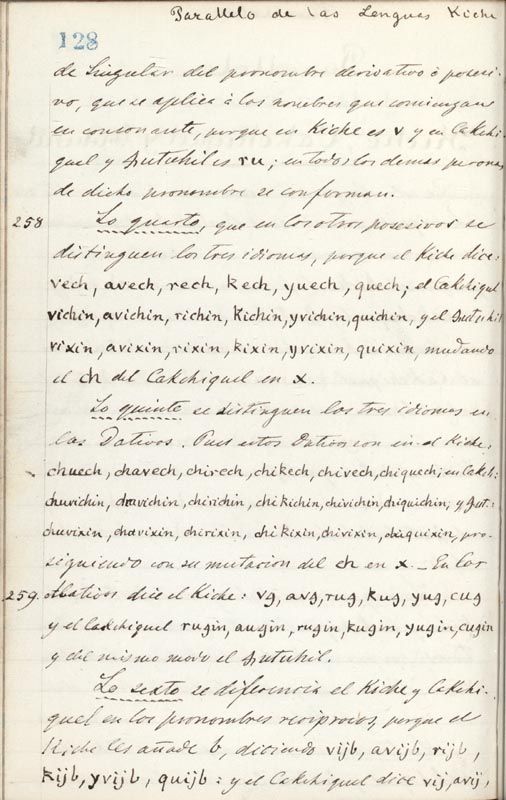 Parallelo de las Lenguas Kiche
128
de Singular del pronombre derivativo ò posesi-
vo, que se aplica à los nombres que comienzan
en consonante, porque en Kiche es v y en Cakchi-
quel y Zutuhil es ru; en todos los demas personas
de dicho pronombre se conforman.
258 Lo quarto, que en los otros posesivos se
distinguen los tres idiomas, porque el Kiche dice:
vech, avech, rech, kech, yvech, quech; el Cakchiquel
vichin, avichin, richin, kichin, yvichin, quichin, y el Zutuhil
vixin, avixin, rixin, kixin, yvixin, quixin, mudando
el ch del Cakchiquel en x.
Lo quinto se distinguen los tres idiomas en
los Dativos. Pues estos Dativos son en el Kiche:
chuech, chavech, chirech, chikech, chivech, chiquech; en Cakchi:
chuvichin, chavichin, chirichin, chikichin, chivichin, chiquichin; y Zut:
chuvixin, chavixin, chirixin, chikixin, chivixin, chiquixin, pro-
siguiendo con su mutacion del ch en x. _ En los
259. Ablativos dice el Kiche: vg, avg, rug, kug, yug, cug
y el Cakchiquel rugin, augin, rugin, kugin, yugin, cugin
y del mismo modo el Zutuhil.
Lo sexto se diferencia el Kiche y Cakchi-
quel en los pronombres reciprocos, porque el
Kiche les añade b, diciendo vijb, avijb, rijb,
kijb, yvijb, quijb: y el Cakchiquel dice vij, avij,